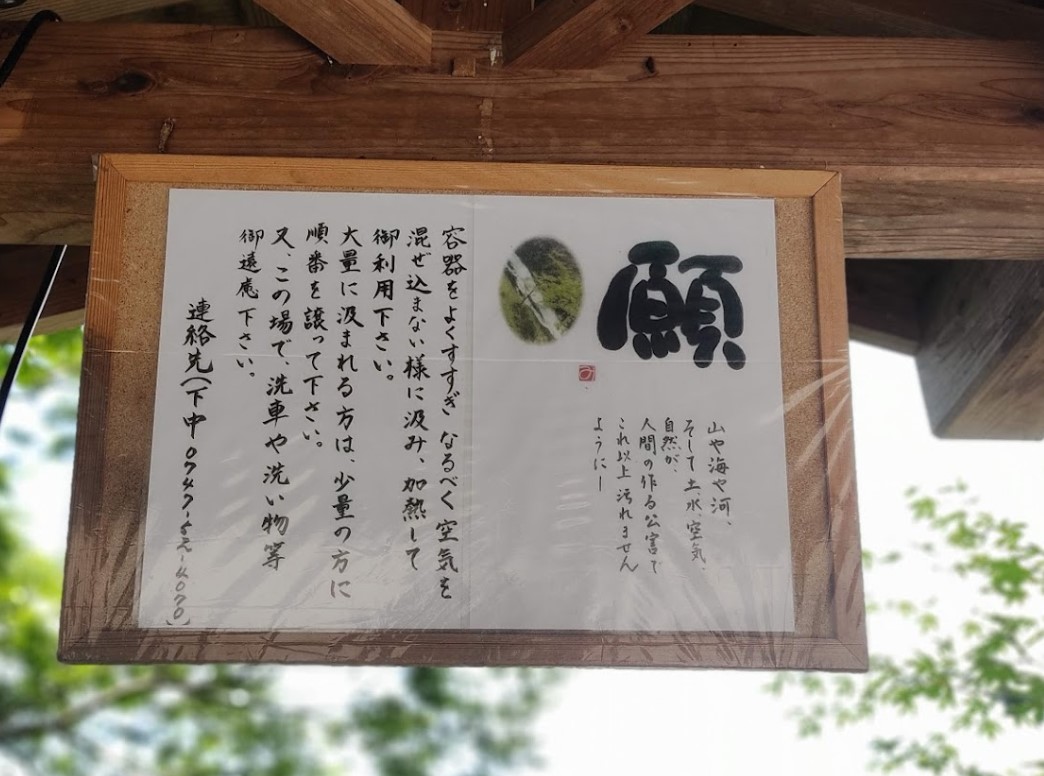 願
山や海や河、
そして土、水、空気、
自然が、
人間の作る公害で
これ以上 汚れません
ようにー
容器をよくすすぎ なるべく 空気を
混ぜ込まない様に汲み、加熱して
御利用下さい。
大量に汲まれる方は、少量の方に
順番を譲って下さい。
又、この場で、洗車や洗い物等
御遠慮下さい。
連絡先(下中